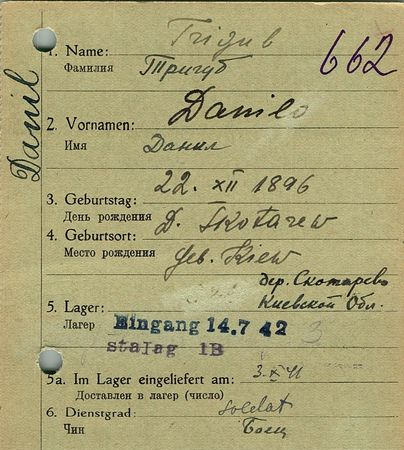 Trigub
1. Name:
662
Фамилия Тригуб
Danil
Danilo
2. Vornamen:
Имя Данил
3. Geburtstag: 22. XII 1896
День рождения
4. Geburtsort: D. Skotarew
Место рождения Geb. Kiew
дер. Скотарево
5. Lager: Киевской Обл.
Лагер Eingang 14.7 42 3
stalag 1B
5a. Im Lager eingeliefert am: 3. XI 41
Доставлен в лагер (число)
6. Dienstgrad: soldat
Чин Боец